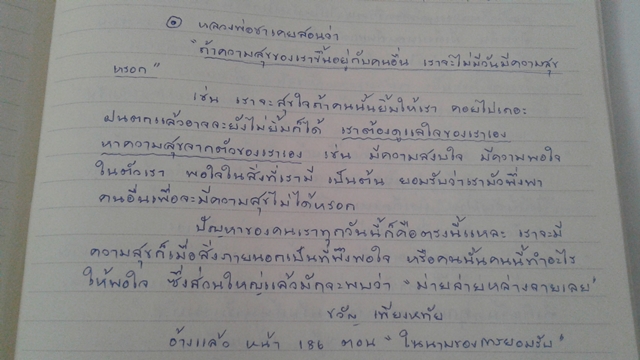 ๑ หลวงพ่อชาเคยสอนว่า
"ถ้าความสุขของเราขึ้นอยู่กับคนอื่น เราจะไม่มีวันมีความสุข
หรอก"
เช่น เราจะสุขใจถ้าคนนั้นยิ้มให้เรา คอยไปเถอะ
ฝนตกแล้วอาจจะยังไม่ยิ้มก็ได้ เราต้องดูแลใจของเราเอง
หาความสุขจากตัวของเราเอง เช่น มีความสงบใจ มีความพอใจ
ในตัวเรา พอใจในสิ่งที่เรามี เป็นต้น ยอมรับว่าเรามัวพึ่งพา
คนอื่นเพื่อจะมีความสุขไม่ได้หรอก
ปัญหาของคนเราทุกวันนี้ก็คือตรงนี้แหละ เราจะมี
ความสุขก็เมื่อสิ่งภายนอกเป็นที่พึงพอใจ หรือคนนั้นคนนี้ทำอะไร
ให้พอใจ ซึ่งส่วนใหญ่แล้วมักจะพบว่า "ม่ายล่ายหล่างจายเลย"
ขวัญ เพียงหทัย
อ้างแล้ว หน้า 186 ตอน "ในนามของการยอมรับ"